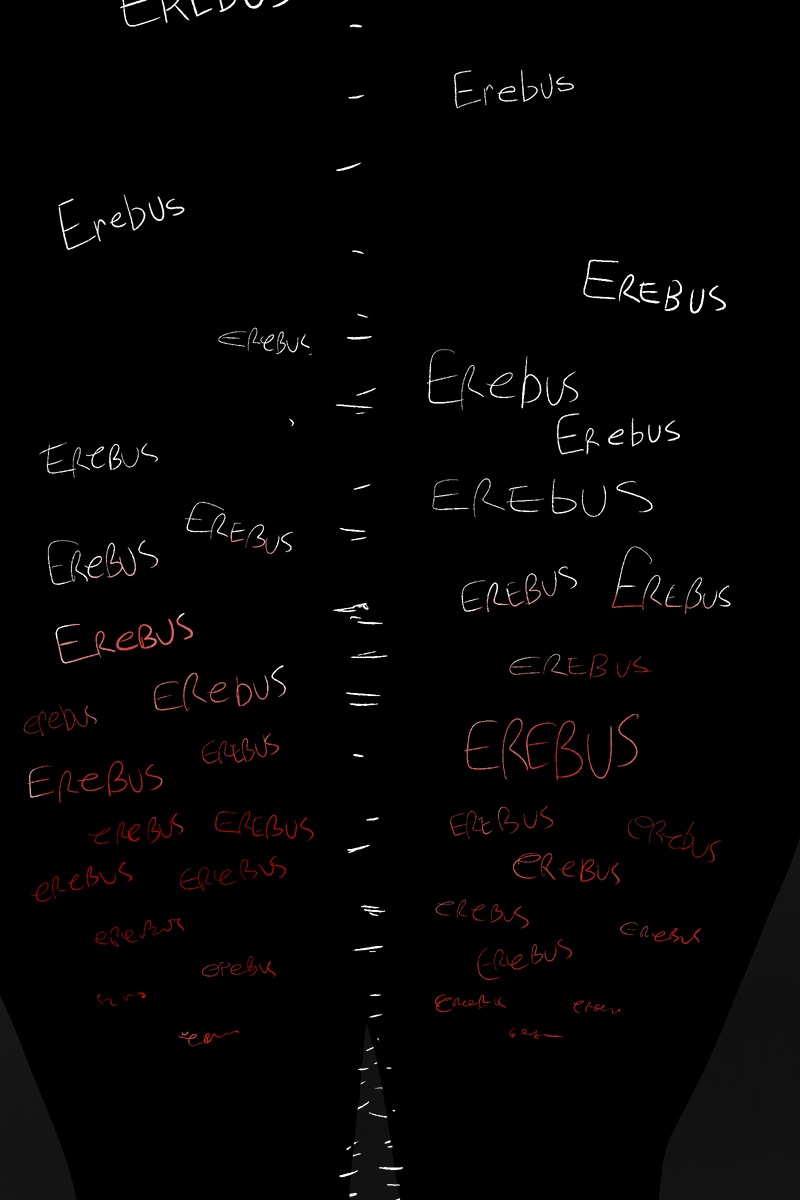 EREBUS
Erebus
Erebus
EREBUS
EReBUS
ERebus
ERebus
EReBUS
EREbUS
EREBUS
EReBUS
EREBUS
EREBUS
EReBUS
EREBUS
ERebUS
erebus
EREBUS
EREBUS
EReBUS
EREBUS
eRebus
eReBUS
EREBUS
eReBUS
eREBUS
EReBUS
eReBUS
ereBUS
EReBUS
EReBUS
ereBUS